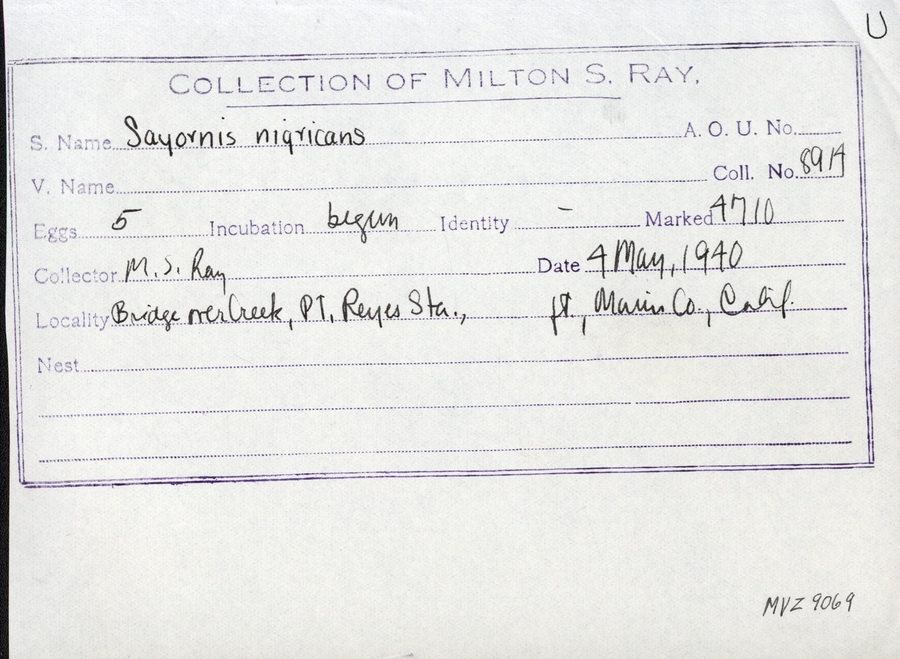 U
COLLECTION OF MILTON S. RAY.
S. Name Sayornis nigricans A. O. U. No.
V. Name Coll. No. 8914
Eggs 5 Incubation begun Identity – Marked 4710
Collector M. S. Ray Date 4 May, 1940
Locality Bridge over Creek, PT. Reyes Sta., ft., Marin Co., Calif.
Nest
MVZ 9069